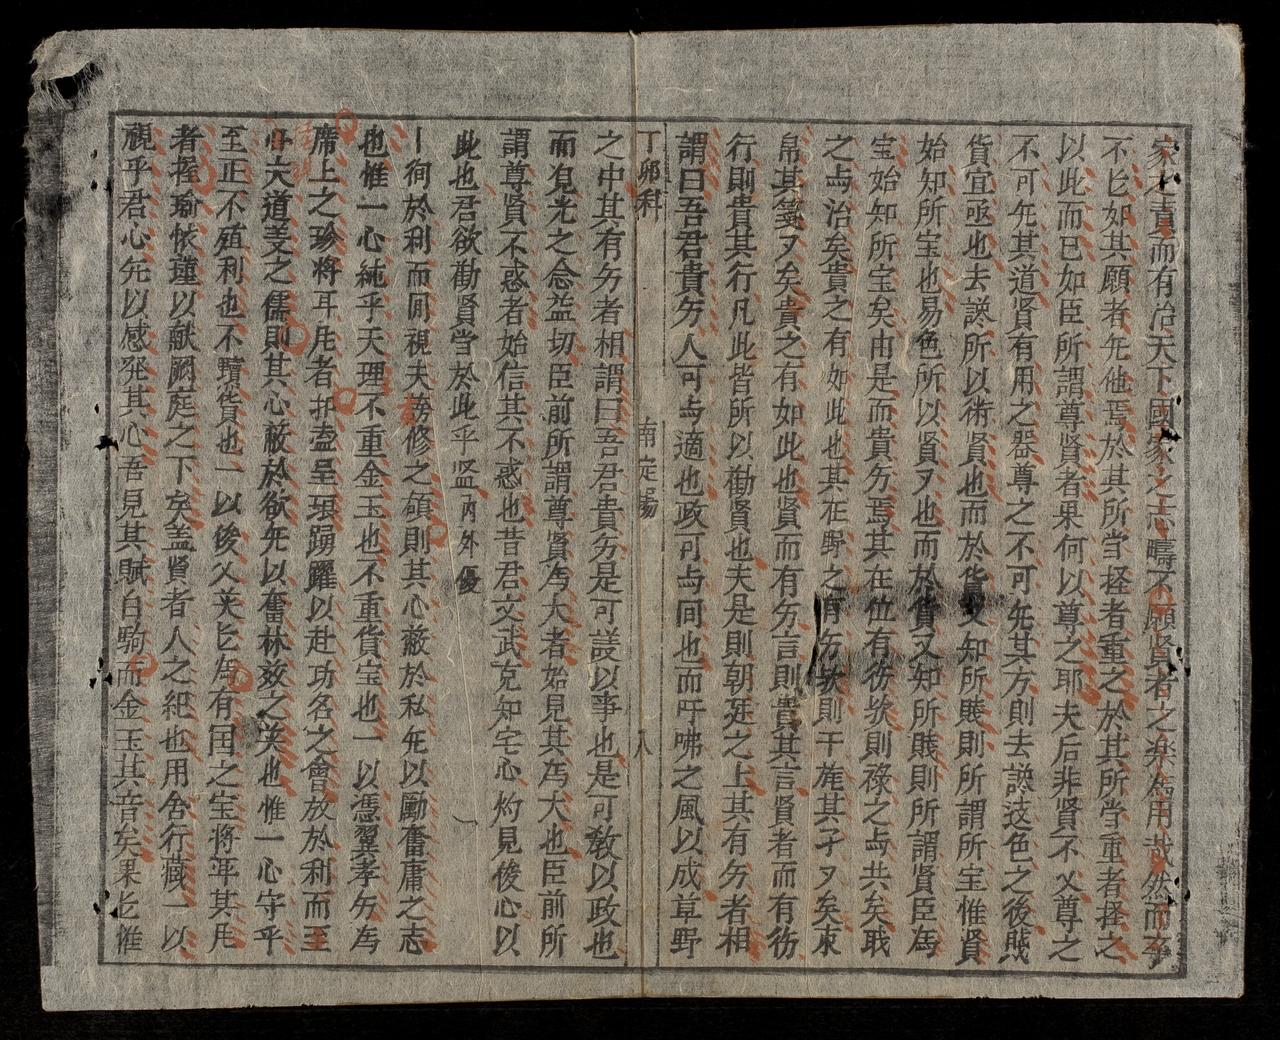 家之責而有治天下國家之志疇不願賢者之楽為用哉然而卒
不㠯如其願者旡他焉於其所当輕者重之於其所当重者輕之
以此而已如臣所謂尊賢者果何以尊之耶夫后非賢不乂尊之
不可旡其道賢有用之器尊之不可旡其方則去讒遠色之後賎
貨宜亟也去讒所以術賢也而於貨又知所賎則所謂所宝惟賢
始知所宝也易色所以賢又也而於貨又知所賎則所謂賢臣為
宝始知所宝矣由是而貴㐹焉其在位有㐹欤則祿之与共矣戢
之与治矣貴之有如此也其在野之有㐹欤則干旄其孑又矣束
帛其箋又矣貴之有如此也賢而有㐹言則貴其言賢者而有㐹
行則貴其行凡此皆所以勸賢也夫是則朝廷之上其有㐹者相
謂曰吾君貴㐹人可与適也政可与间也而吁咈之風以成草野
丁卯科 南定場 八
之中其有㐹者相謂曰吾君貴㐹是可謨以事也是可敎以政也
而覔光之念益切臣前所謂尊賢為大者始見其為大也臣前所
謂尊賢不惑者始信其不惑也昔君文武克知宅心灼見俊心以
此也君欲勸賢当於此乎监 内外優
一徇於利而罔視夫修之領則其心蔽於私旡以勵奮庸之志
也惟一心純乎天理不重金玉也不重貨宝也一以憑翼孝㐹為
席上之珍將耳凥者抔壼呈琅踴躍以赴功名之會放於利而至
大道芰之儒則其心蔽於欲旡以奮林效之英也惟一心守乎
至正不殖利也不黷貨也一以俊乂关㠯為有囯之宝将耳其凥
者握瑜怀瑾以献阙庭之下矣盖賢者人之紀也用舍行藏一以
視乎君心旡以感発其心吾見其賦白駒而金玉其音矣果㠯惟